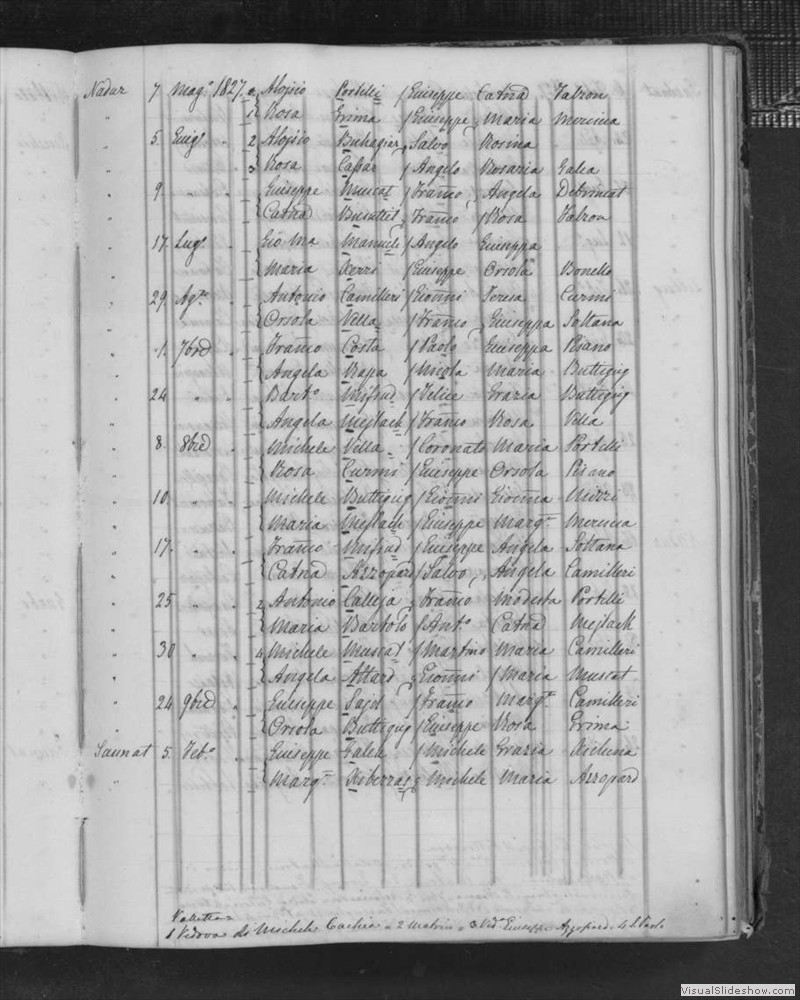 Nadur 7 Mag.o 1827. 2 Aloisio Portelli / Giuseppe Catnd Tabron
" 1 Rosa Grima / Giuseppe, Maria Mercieca
" 5 Giug.o " 2 Aloisio Buhagiar, Salvo Rosina
" 3 Rosa Cassar / Angelo Rosaria Galea
" 9 " " Giuseppe Muscat / Franco, Angela
" Catnd Busuttil, Franco / Rosa Tabron
" 17 Lug.o " Gio Ma / Angelo Giuseppa
" Maria Xerri / Giuseppe Orsola Bonello
" 29 Ag.to " Antonio Camilleri / Gionni Teresa Curmi
" Orsola Vella / Franco, Giuseppa Soltana
" 1. 7bre " Franco Costa / Paolo Giuseppa Pisano
" Angela Rapa / Nicola Maria Buttigieg
" 24 " " Bart.o Mifsud / Felice Grazia Buttigieg
" Angela Mejlack / Franco Rosa Vella
" 8. 8bre " Michele Vella / Coronato Maria Portelli
" Rosa Curmi / Giuseppe Orsola Pisano
" 10 " " Michele Buttigieg / Gionni Giovina
" Maria Mejlack / Giuseppe Marg.ta Mercieca
" 17. " " Franco Mifsud / Giuseppe Angela Soltana
" Catnd Azzopard / Salvo, Angela Camilleri
" 25 " " 2 Antonio Calleja, Franco Modesta Portelli
" Maria Bartolo / Ant.o Catnd Mejlack
" 30 " " 4 Michele Muscat / Martino Maria Camilleri
" Angela Attard, Gionni / Maria Muscat
" 24 9bre " Giuseppe Said / Franco Marg.ta Camilleri
" Orsola Buttigieg / Giuseppe Rosa Grima
Sannat 5. Feb.o " Giuseppe Galea / Michele Grazia Xicluna
Marg.ta Michele Maria Azzopard
1 Vedova di Michele Cachia 2 3 Ved.a Giuseppe Azzopard. 4
VisualSlideshow.com